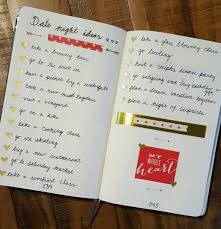 Date night ideas
take a brewery tour
go to the
have a picnic by a waterfall
cook a new meal together
visit a vineyard
go on a hike
take a cooking class
go ice skating
try a new restaurant
go to saturday market
take a workout class
139
take a glass blowing class
go bowling
host a couples dinner party
go
plan a dream vacation together
plan a night of surprise
MY
WHOLE
heart
140